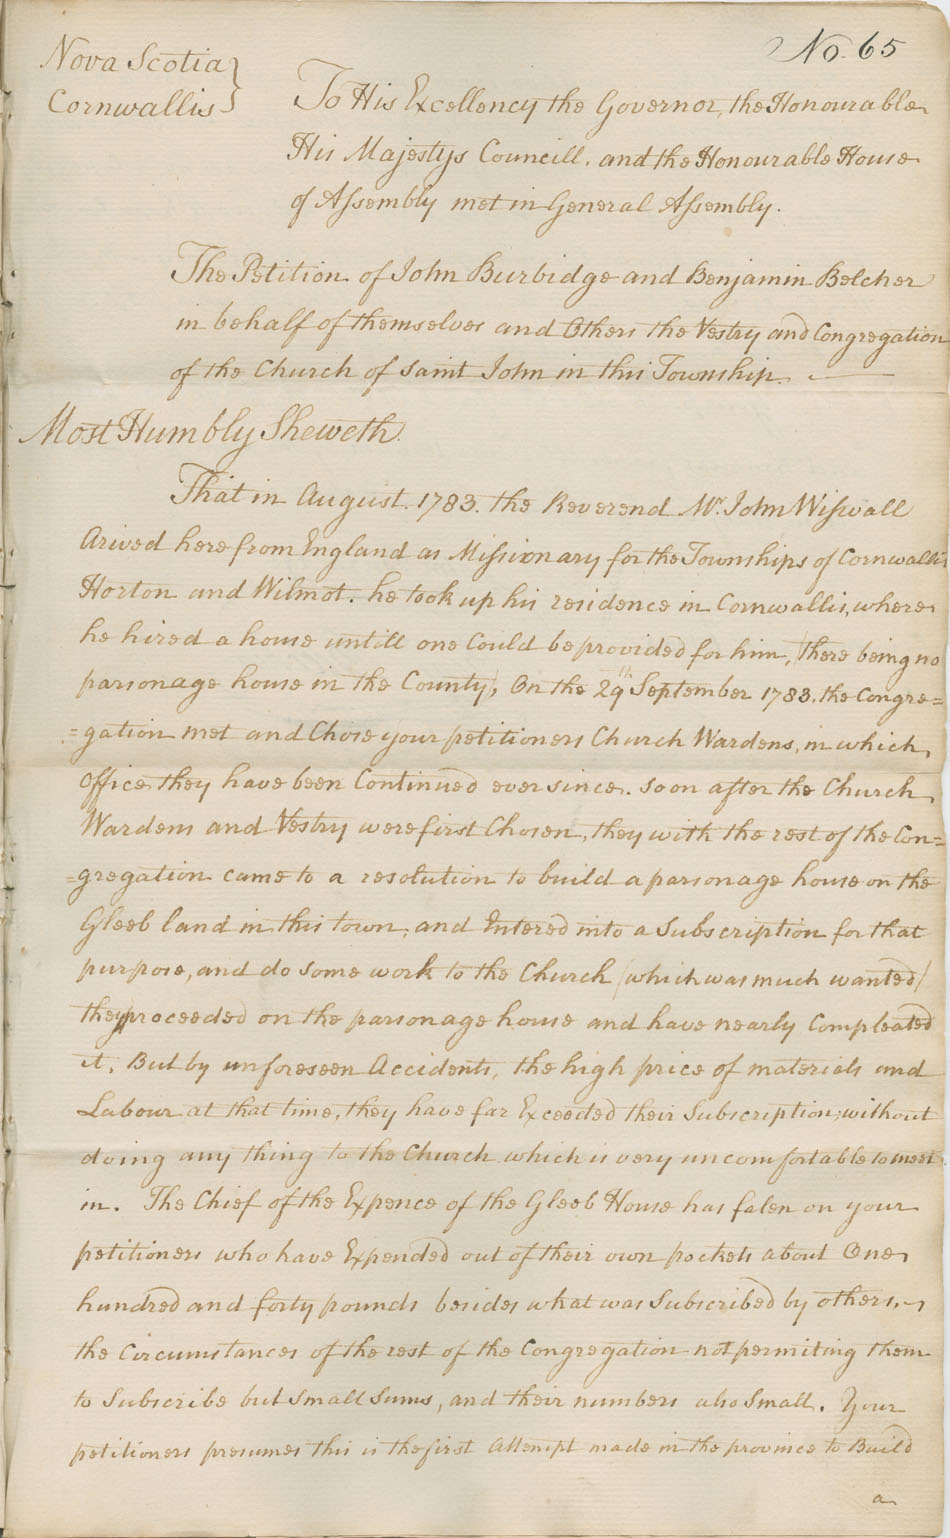 No. 65
Nova Scotia }
Cornwallis }
To His Excellency the Governor, the Honourable
His Majestys Councill, and the Honourable House
of Assembly met in General Assembly.
The Petition of John Burbidge and Benjamin Belcher
in behalf of themselves and Others the Vestry and Congregation
of the Church of Saint John in this Township.
Most Humbly Sheweth.
That in August. 1783. the Reverend Mr. John Wiswall
Arived here from England as Missionary for the Townships of Cornwallis
Horton and Wilmot. he took up his residence in Cornwallis, where
he hired a house untill one Could be provided for him, (there being no
parsonage house in the County), On the 29th September 1783. the Congre=
=gation met and Chose your petitioners Church Wardens, in which
office they have been Continued ever since. soon after the Church
Wardens and Vestry were first Chosen, they with the rest of the Con=
=gregation came to a resolution to build a parsonage house on the
Gleeb land in this town, and Entered into a Subscription for that
purpose, and do some work to the Church (which was much wanted)
they proceeded on the parsonage house and have nearly Compleated
it, But by unforeseen Accidents, the high price of materials and
Labour at that time, they have far Exceeded their Subscription, without
doing any thing to the Church which is very uncomfortable to meet
in. The Chief of the Expence of the Gleeb House has falen on your
petitioners who have Expended out of their own pockets about One
hundred and forty pounds besides what was Subscribed by others.
the Circumstances of the rest of the Congregation not permiting them
to Subscribe but Small Sums, and their numbers also Small. Your
petitioners presumes this is the first Attempt made in the province to Build
a